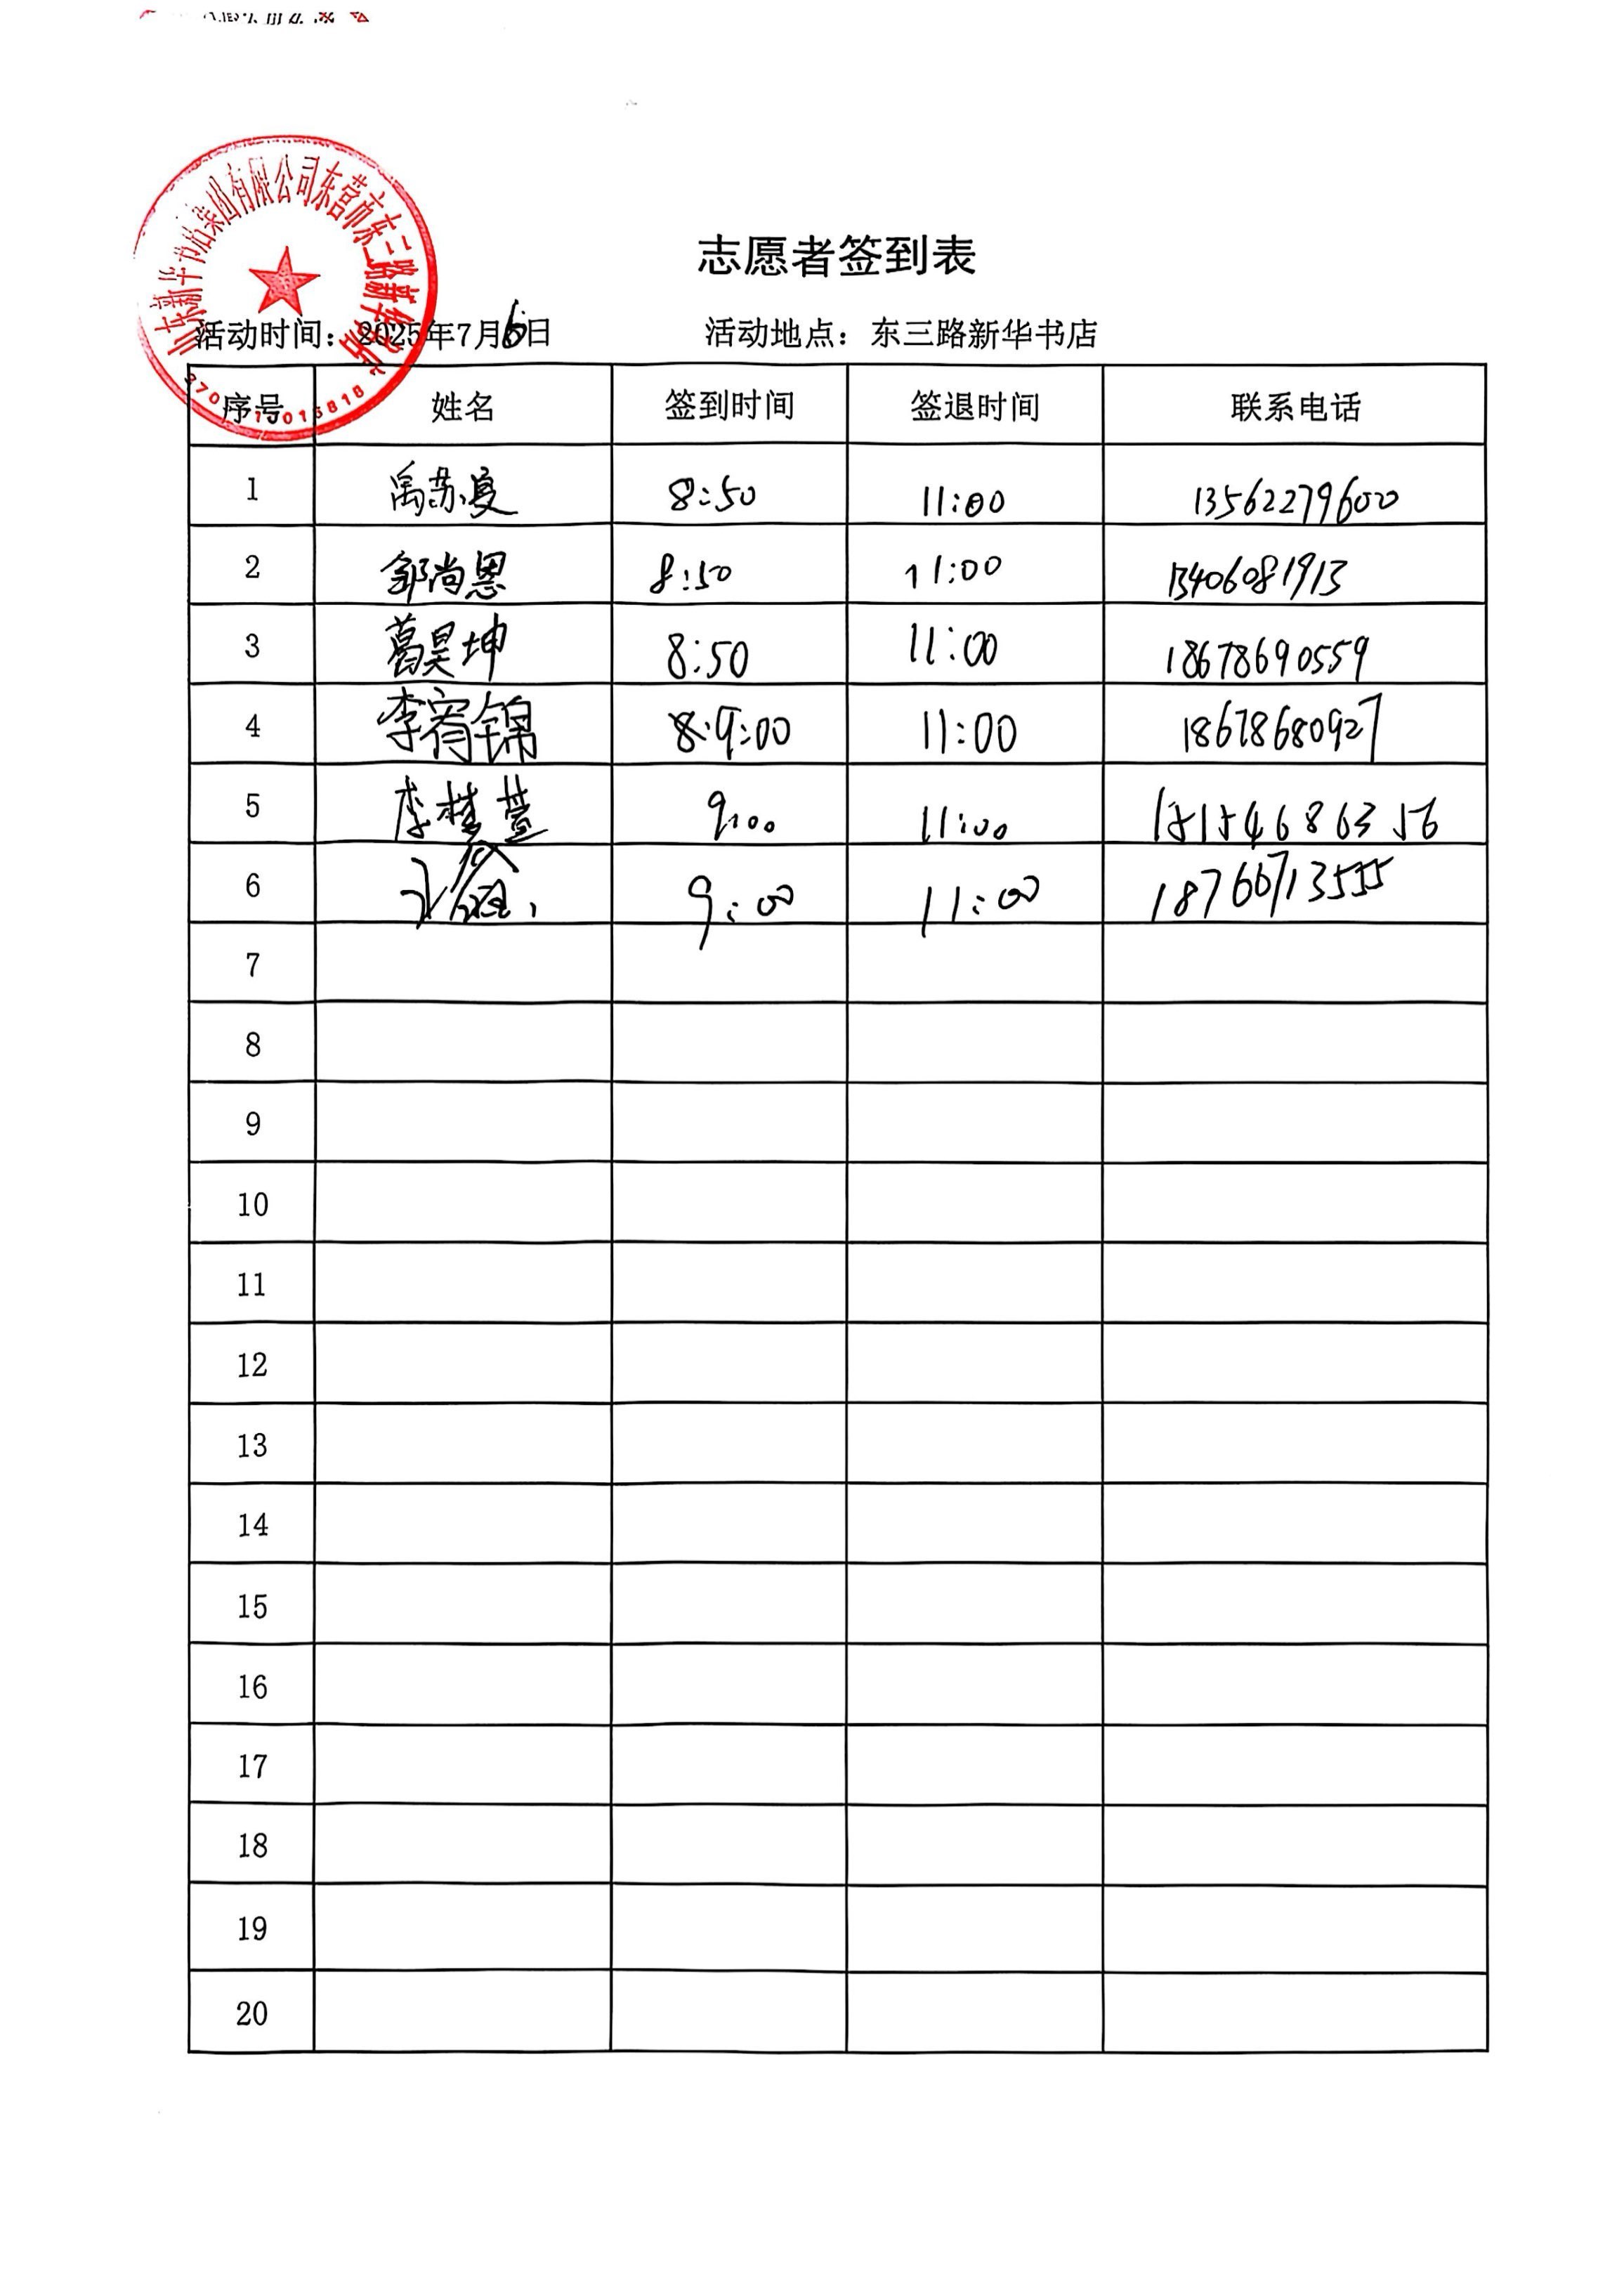 山东新华书店集团有限公司东营市东三路新华书店
志愿者签到表
活动时间：2025年7月6日 活动地点：东三路新华书店
序号 姓名 签到时间 签退时间 联系电话
1 禹苏夏 8:50 11:00 13562279600
2 邹尚恩 8:50 11:00 13406081913
3 葛昊坤 8:50 11:00 18678690559
4 李宥锦 9:00 11:00 18678680927
5 李 萱 9:00 11:00 15154686356
6 9:00 11:00 18766713555
7
8
9
10
11
12
13
14
15
16
17
18
19
20